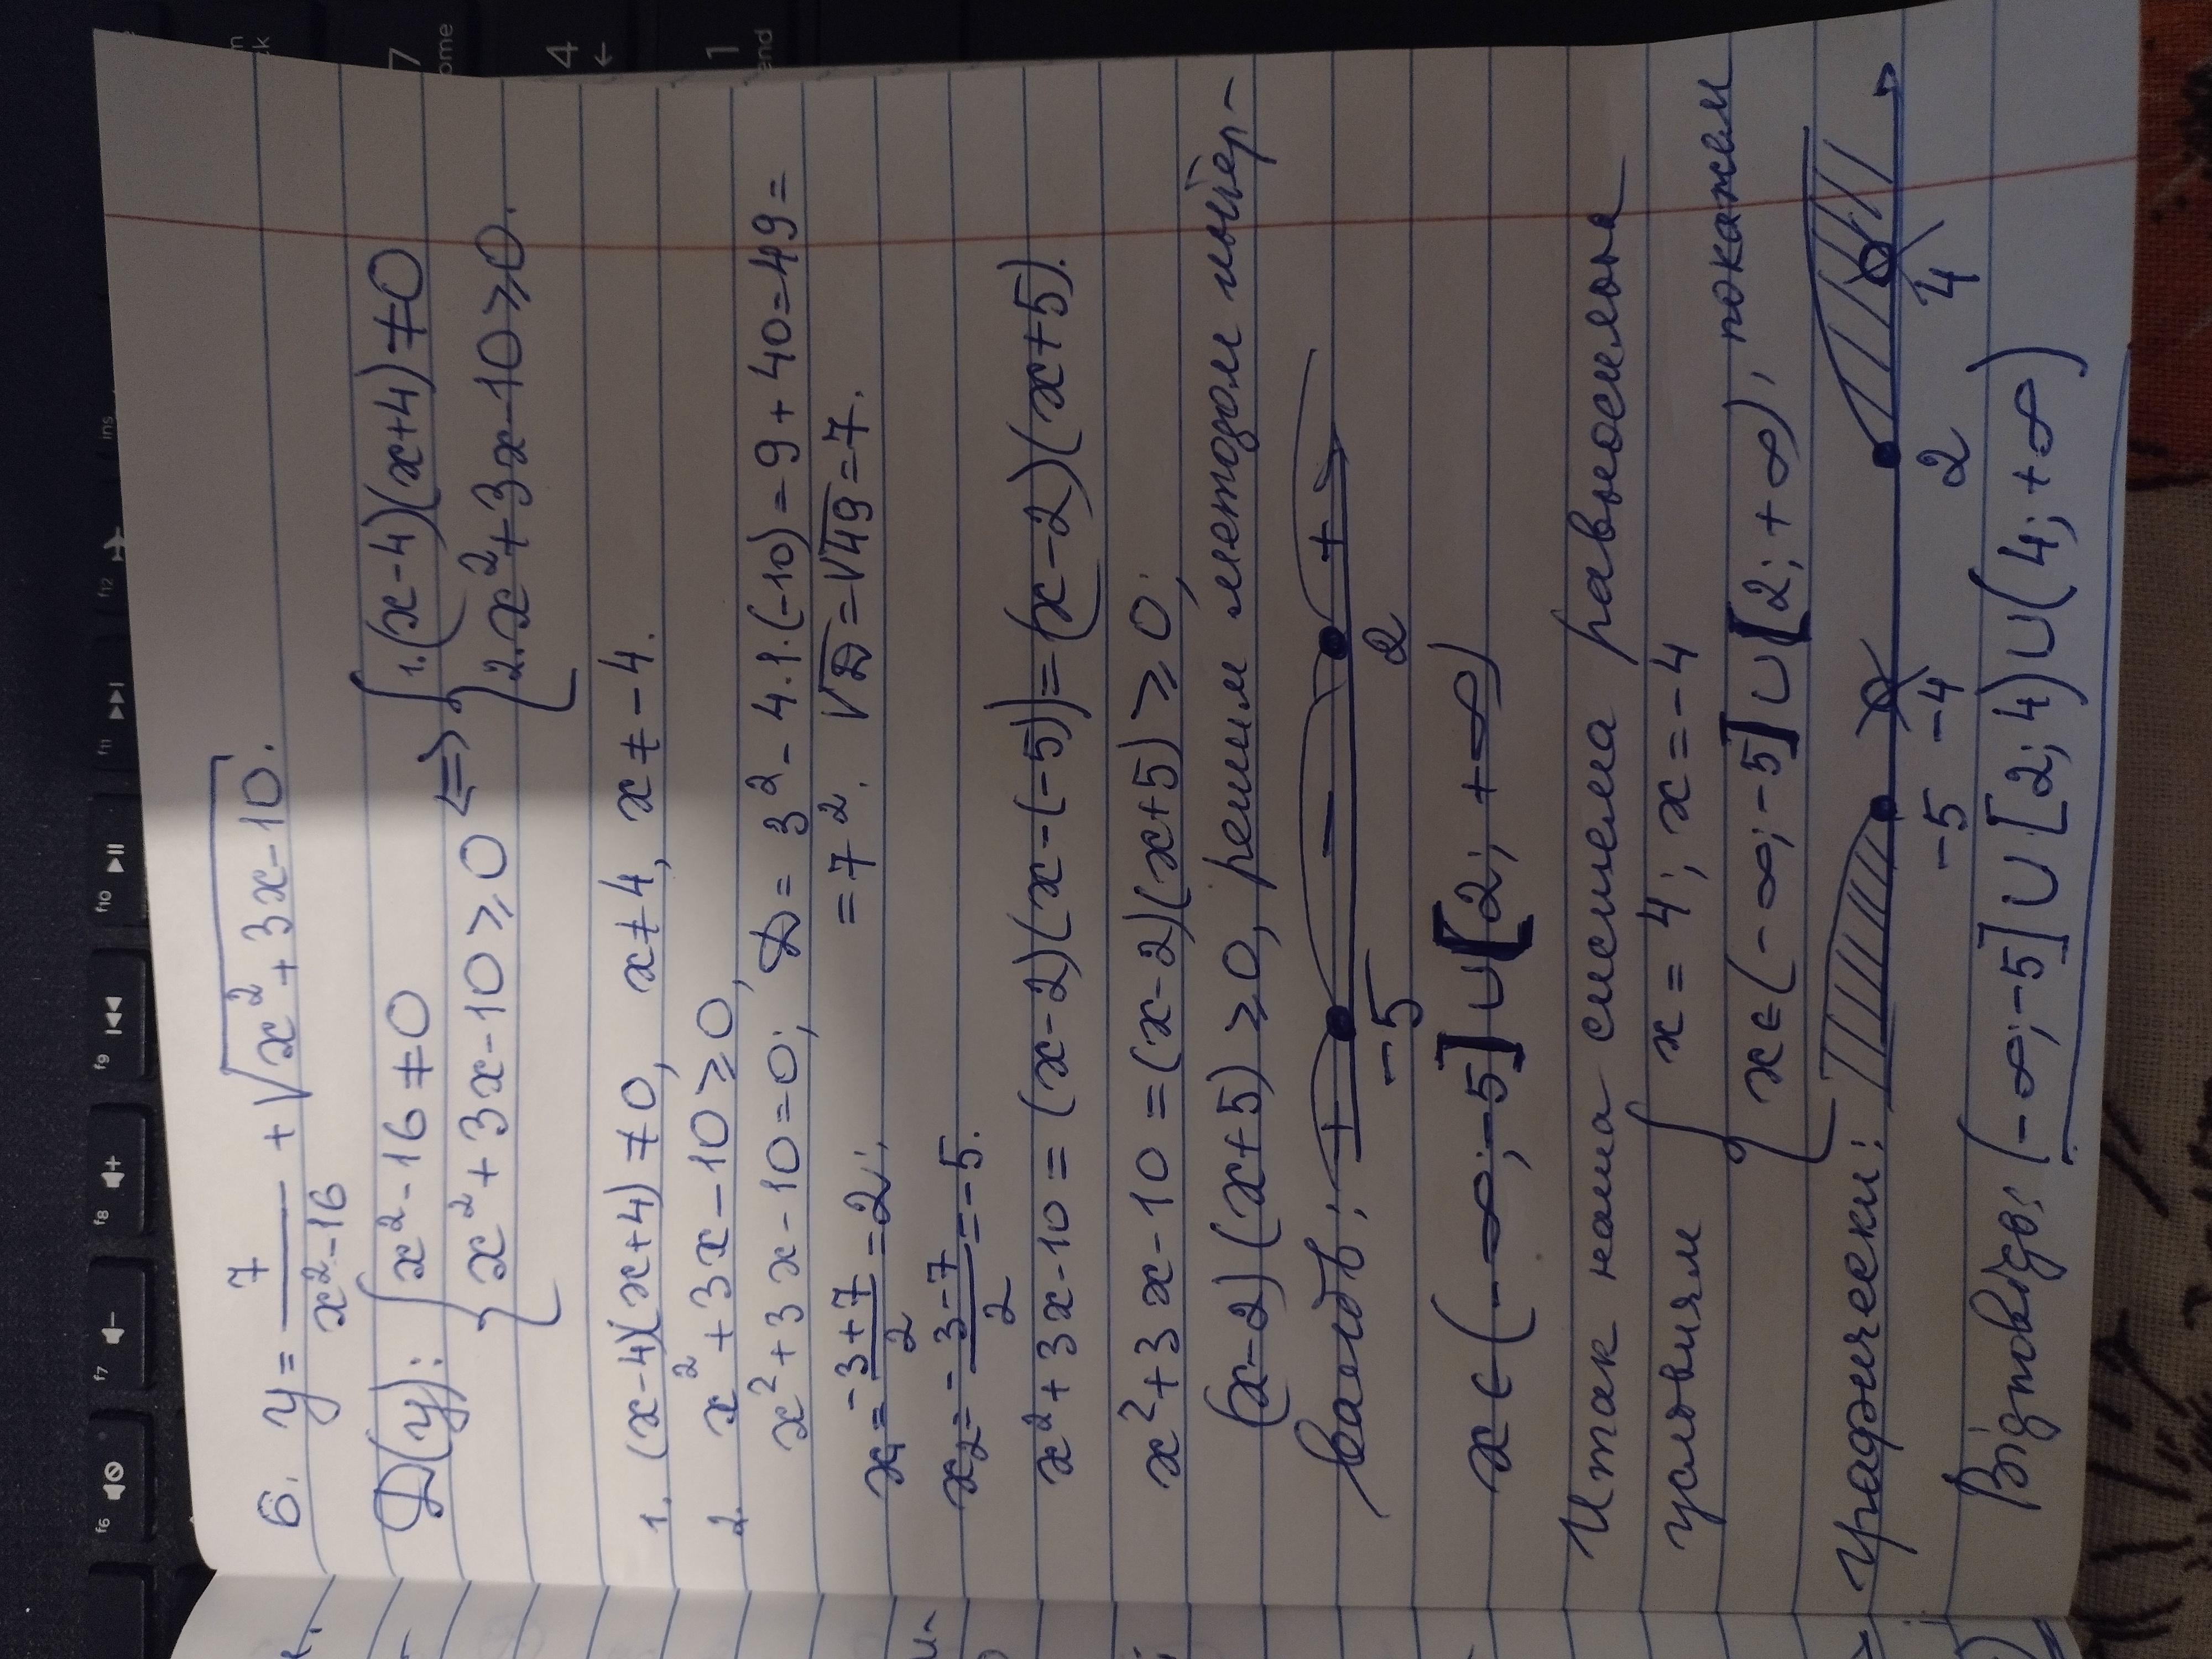 6. y = 7/(x² - 16) + √(x² + 3x - 10).
D(y): { x² - 16 ≠ 0 ; x² + 3x - 10 ≥ 0 <=> { 1. (x-4)(x+4) ≠ 0 ; 2. x² + 3x - 10 ≥ 0.
1. (x-4)(x+4) ≠ 0, x ≠ 4, x ≠ -4.
2. x² + 3x - 10 ≥ 0,
x² + 3x - 10 = 0; D = 3² - 4·1·(-10) = 9 + 40 = 49 =
= 7². √D = √49 = 7.
x₁ = (-3+7)/2 = 2;
x₂ = (-3-7)/2 = -5.
x² + 3x - 10 = (x-2)(x-(-5)) = (x-2)(x+5).
x² + 3x - 10 = (x-2)(x+5) ≥ 0;
(x-2)(x+5) ≥ 0, решим методом интер-
валов: + - +
-5 2
x ∈ (-∞; -5] ∪ [2; +∞)
Итак наша система равносильна
условиям { x = 4; x = -4
x ∈ (-∞; -5] ∪ [2; +∞), покажем
графически:
-5 -4 2 4
Відповідь: (-∞; -5] ∪ [2; 4) ∪ (4; +∞)
f6
f7
f8
f9
f10
f11
f12
ins
7
ome
4
←
1
end